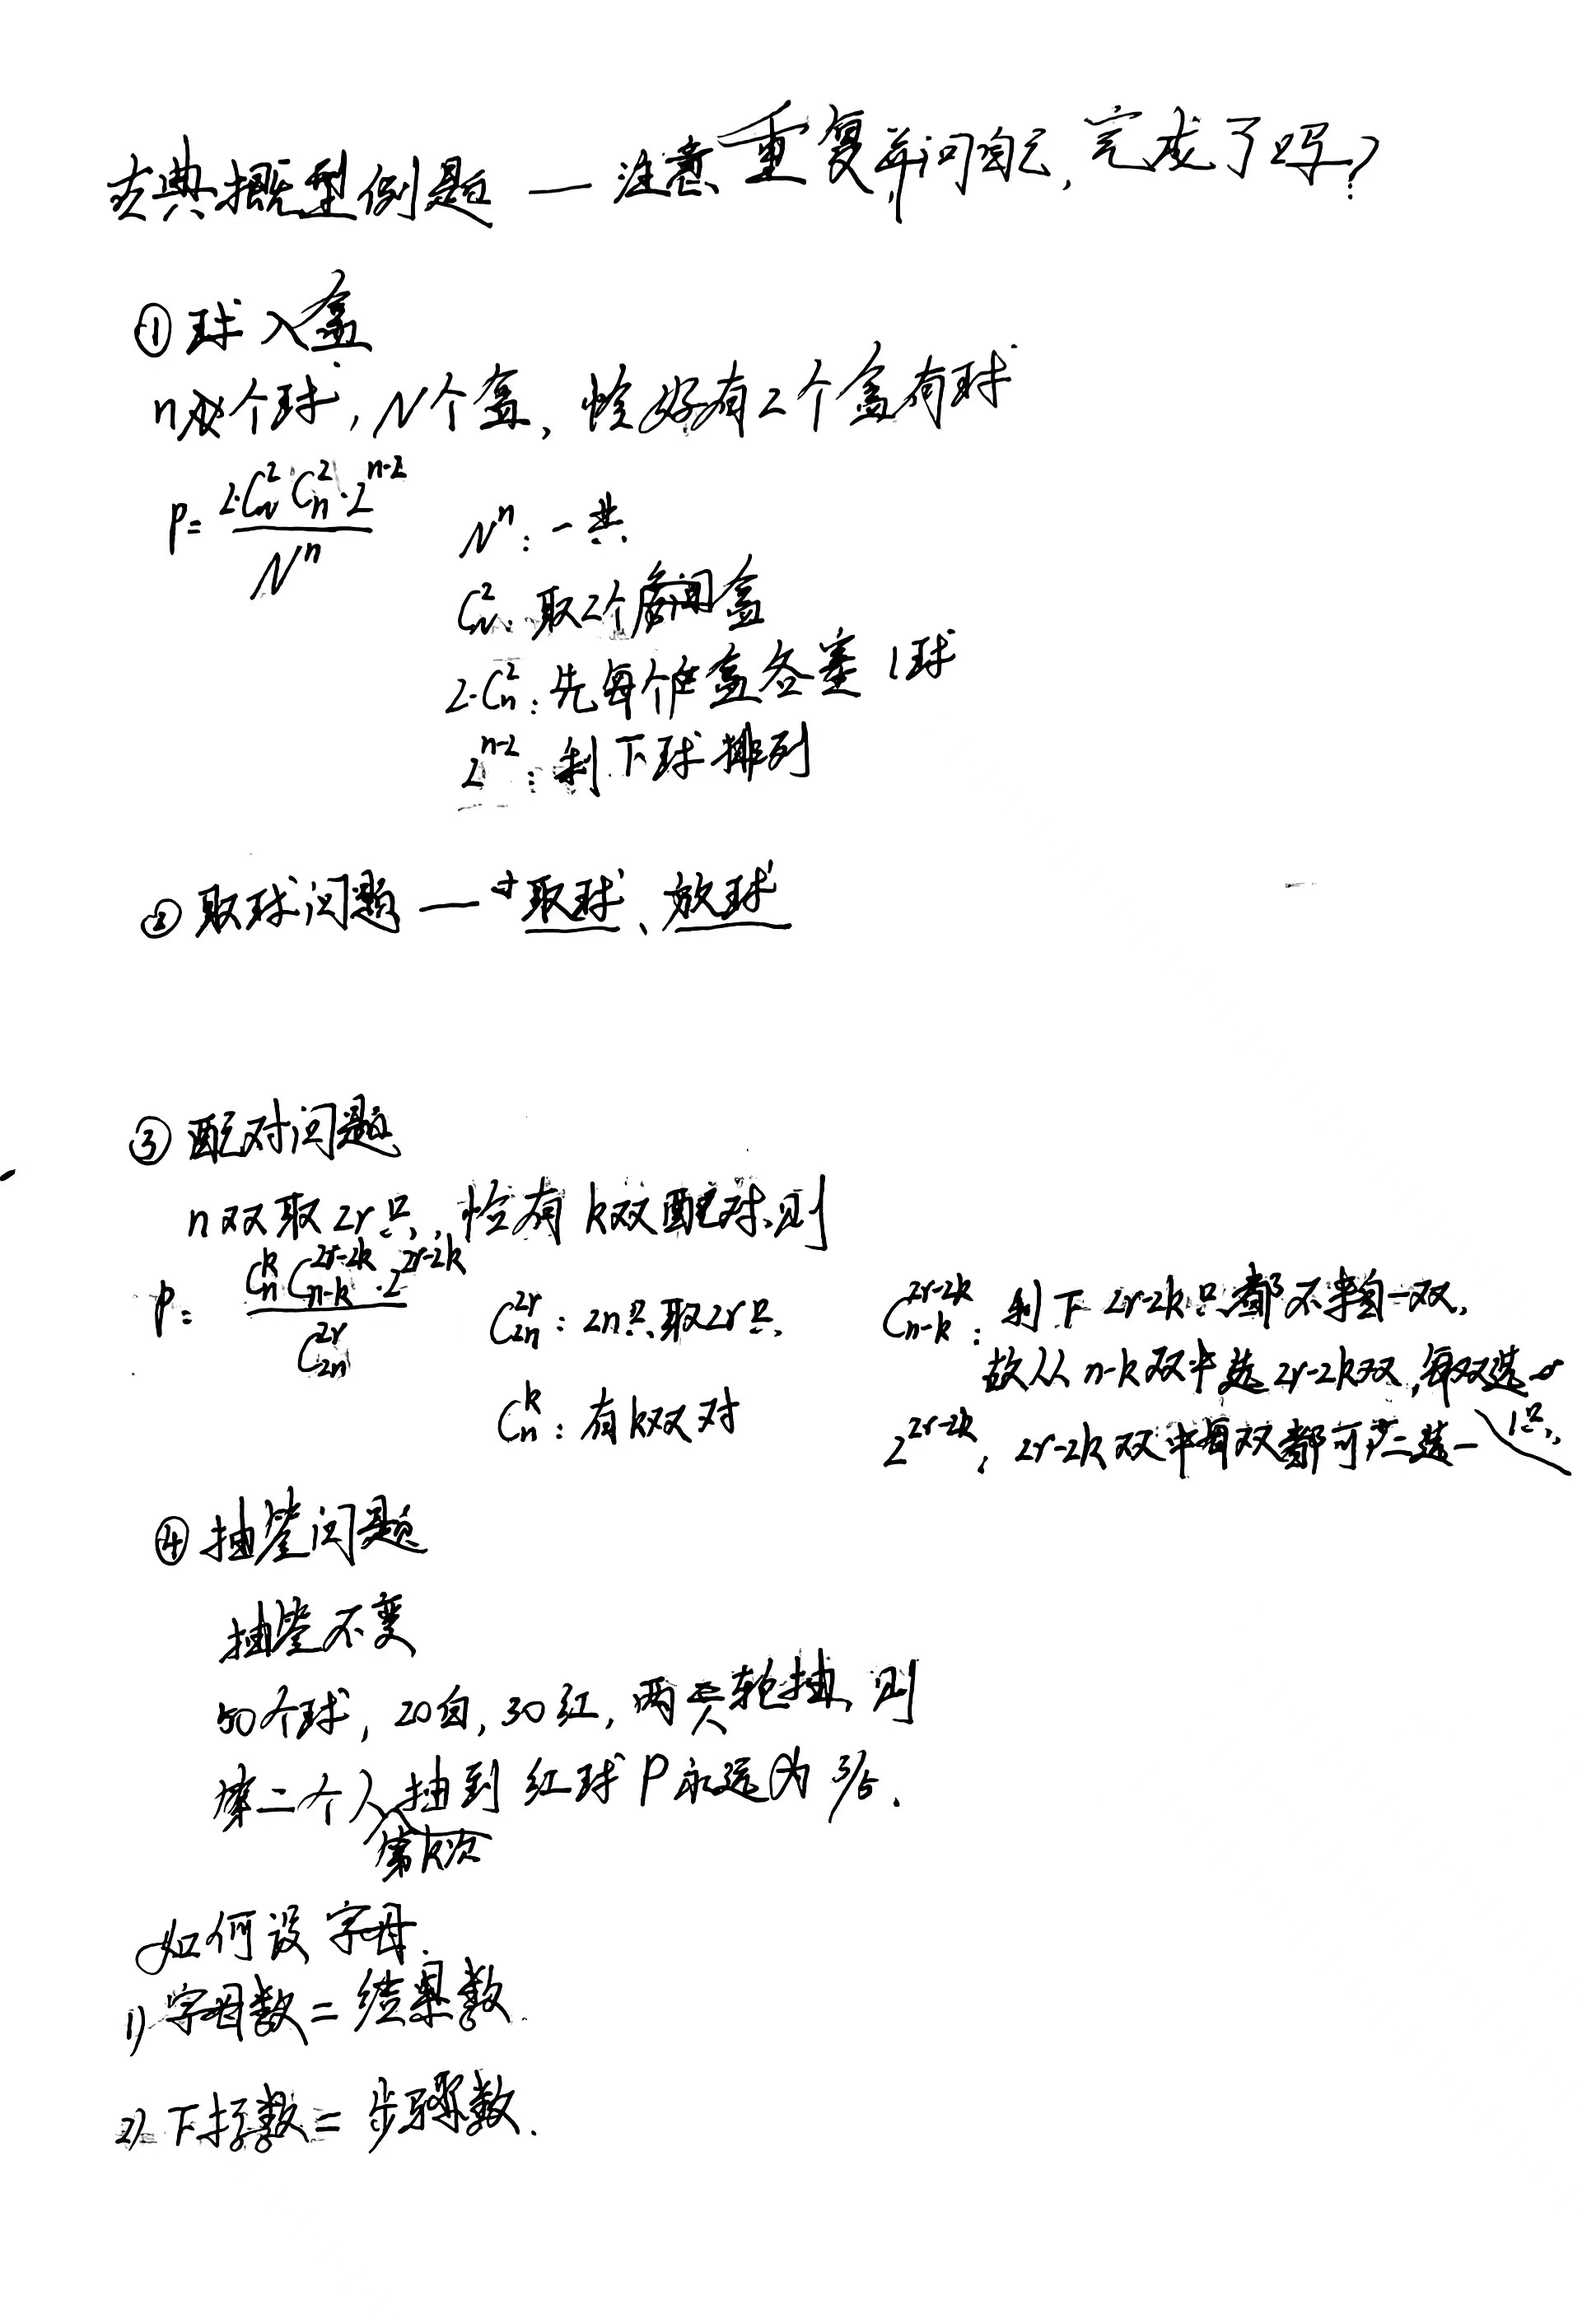 古典概型例题 — 注意重复并问自己,完成了吗?
① 球入盒
n个球, N个盒, 恰好有2个盒有球
P= 2·C_N^2 C_n^2·2^{n-2} / N^n
N^n: 一共
C_N^2: 取2个盒
2·C_n^2: 先每个盒各塞1球
2^{n-2}: 剩下球排列
② 取球问题 — 取球、放球
③ 配对问题
n双取2r只, 恰有k双配对,则
P= C_n^k C_{n-k}^{2r-2k}·2^{2r-2k} / C_{2n}^{2r}
C_{2n}^{2r}: 2n只取2r只
C_n^k: 有k双对
C_{n-k}^{2r-2k}: 剩下2r-2k只都不来自一双,
故从n-k双中选2r-2k双,每双选1只
2^{2r-2k}, 2r-2k双中每双都可二选一
④ 抽签问题
抽签不变
50个球, 20白, 30红, 两人轮抽,则
第二个人抽到红球P永远为3/5.
第k次
如何设字母.
1) 字母数=结果数.
2) 下标数=步骤数.